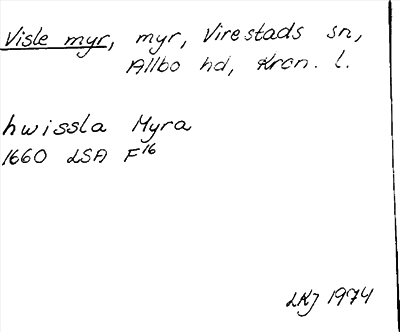 Visle myr, myr, Virestads sn,
Allbo hd, Kron. l.
hwissla Myra
1660 LSA F16
LKJ 1974